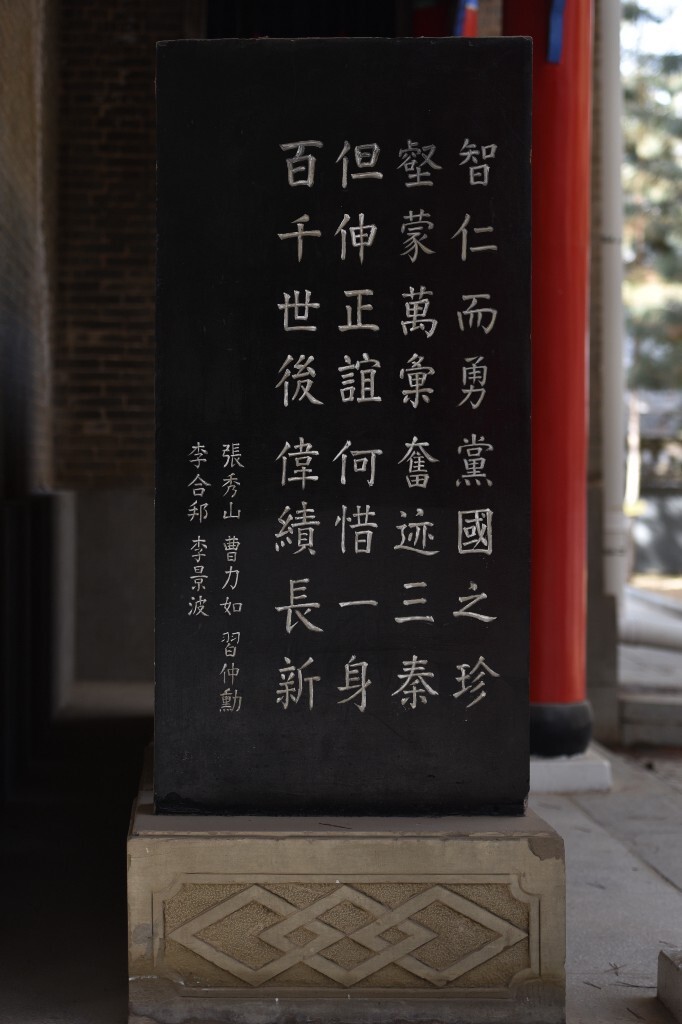 智仁而勇黨國之珍
壑蒙萬彙奮迹三秦
但伸正誼何惜一身
百千世後偉績長新
張秀山 曹力如 習仲勳
李合邦 李景波